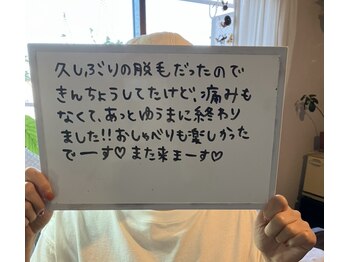 久しぶりの脱毛だったので
きんちょうしてたけど、痛みも
なくて、あっとゆうまに終わり
ました!!おしゃべりも楽しかった
でーす♡また来まーす♡